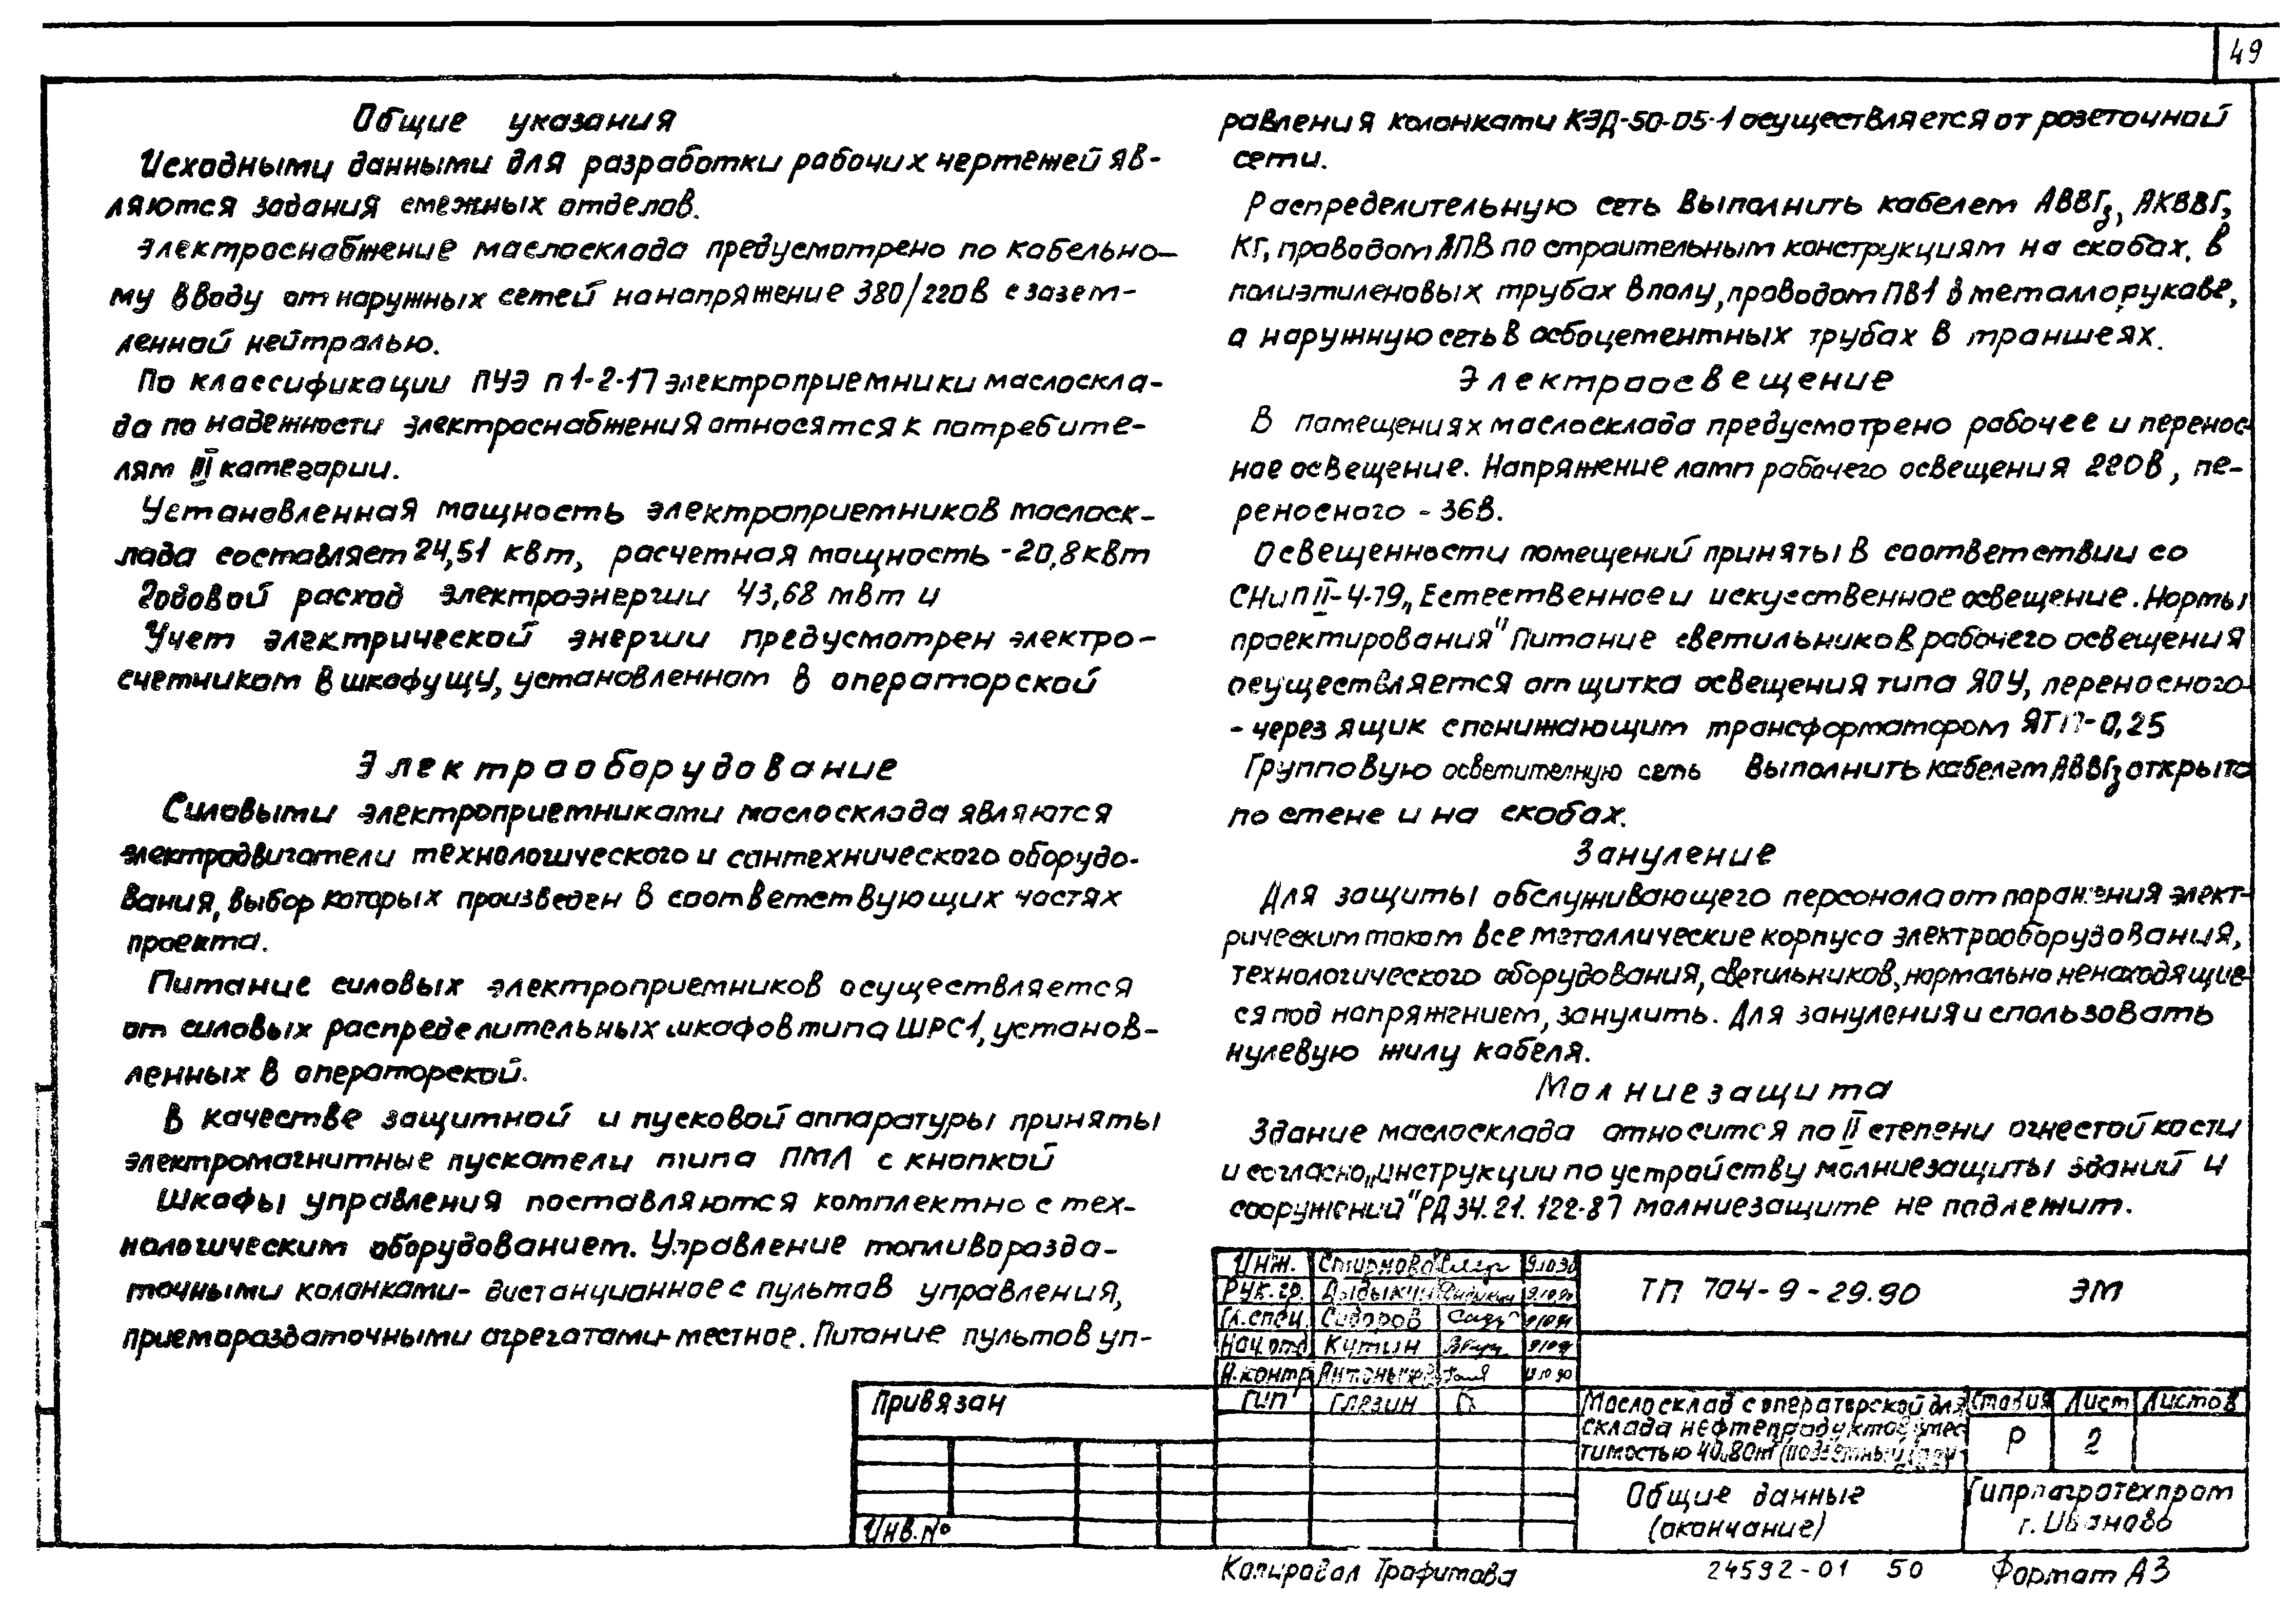 49
Общие указания
Исходными данными для разработки рабочих чертежей яв-
ляются задания смежных отделов.
Электроснабжение маслосклада предусмотрено по кабельно-
му вводу от наружных сетей на напряжение 380/220В с зазем-
ленной нейтралью.
По классификации ПУЭ п 1-2-17 электроприемники маслоскла-
да по надежности электроснабжения относятся к потребите-
лям III категории.
Установленная мощность электроприемников маслоск-
лада составляет 24,51 квт, расчетная мощность - 20,8 квт
Годовой расход электроэнергии 43,68 мвт и
Учет электрической энергии предусмотрен электро-
счетчиком в шкафу щу, установленном в операторской
Электрооборудование
Силовыми электроприемниками маслосклада являются
электродвигатели технологического и сантехнического оборудо-
вания, выбор которых произведен в соответствующих частях
проекта.
Питание силовых электроприемников осуществляется
от силовых распределительных шкафов типа ШРС1, установ-
ленных в операторской.
В качестве защитной и пусковой аппаратуры приняты
электромагнитные пускатели типа ПМЛ с кнопкой
Шкафы управления поставляются комплектно с тех-
нологическим оборудованием. Управление топливоразда-
точными колонками - дистанционное с пультов управления,
приемораздаточными агрегатами - местное. Питание пультов уп-
равления колонками КЭД-50-05-1 осуществляется от розеточной
сети.
Распределительную сеть выполнить кабелем АВВГз, АКВВГ,
КГ, проводом АПВ по строительным конструкциям на скобах, в
полиэтиленовых трубах в полу, проводом ПВ1 в металлорукаве,
а наружную сеть в асбоцементных трубах в траншеях.
Электроосвещение
В помещениях маслосклада предусмотрено рабочее и перенос-
ное освещение. Напряжение ламп рабочего освещения 220В, пе-
реносного - 36В.
Освещенности помещений приняты в соответствии со
СНиП II-4-79 „Естественное и искусственное освещение. Нормы
проектирования" Питание светильников рабочего освещения
осуществляется от щитка освещения типа ЯОУ, переносного-
- через ящик с понижающим трансформатором ЯТП-0,25
Групповую осветителную сеть выполнить кабелем АВВГз открыто
по стене и на скобах.
Зануление
Для защиты обслуживающего персонала от поражения элект-
рическим током все металлические корпуса электрооборудования,
технологического оборудования, светильников, нормально ненаходящие-
ся под напряжением, занулить. Для зануления использовать
нулевую жилу кабеля.
Молниезащита
Здание маслосклада относится по II степени огнестойкости
и согласно „инструкции по устройству молниезащиты зданий и
сооружений" РД 34.21.122-87 молниезащите не подлежит.
Инж. Смирнова
Рук.гр. Дыдыкин
Гл.спец. Сидоров
Нач.отд Кутин
Н.контр
ГИП Глезин
ТП 704-9-29.90 ЭМ
Привязан
Инв.№
Маслосклад с операторской для
склада нефтепродуктов вмес-
тимостью 40,80м³
Стадия Лист Листов
Р 2
Общие данные
(окончание)
Гипроагротехпром
г. Иваново
Копировал Трофимова 24592-01 50 Формат А3